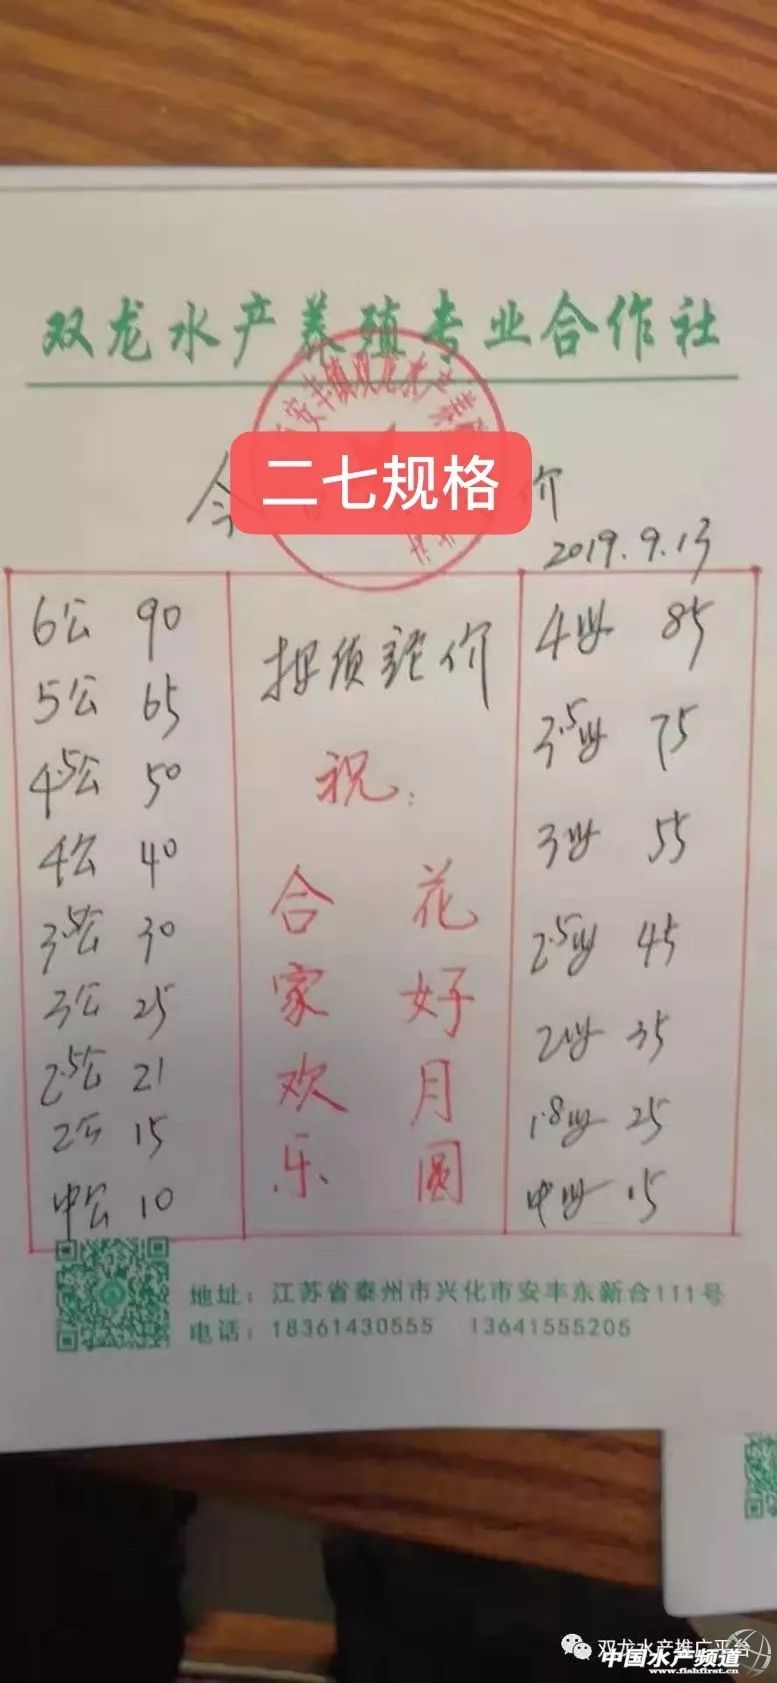 双龙水产养殖专业合作社
二七规格
今
价
2019.9.13
6公 90
5公 65
4.5公 50
4公 40
3.5公 30
3公 25
2.5公 21
2公 15
中公 10
按质论价
祝:
花好月圆
合家欢乐
4母 85
3.5母 75
3母 55
2.5母 45
2母 35
1.8母 25
中母 15
地址：江苏省泰州市兴化市安丰东新合111号
电话：18361430555 13641555205
双龙水产推广平台
中国水产频道
www.fishfirst.cn